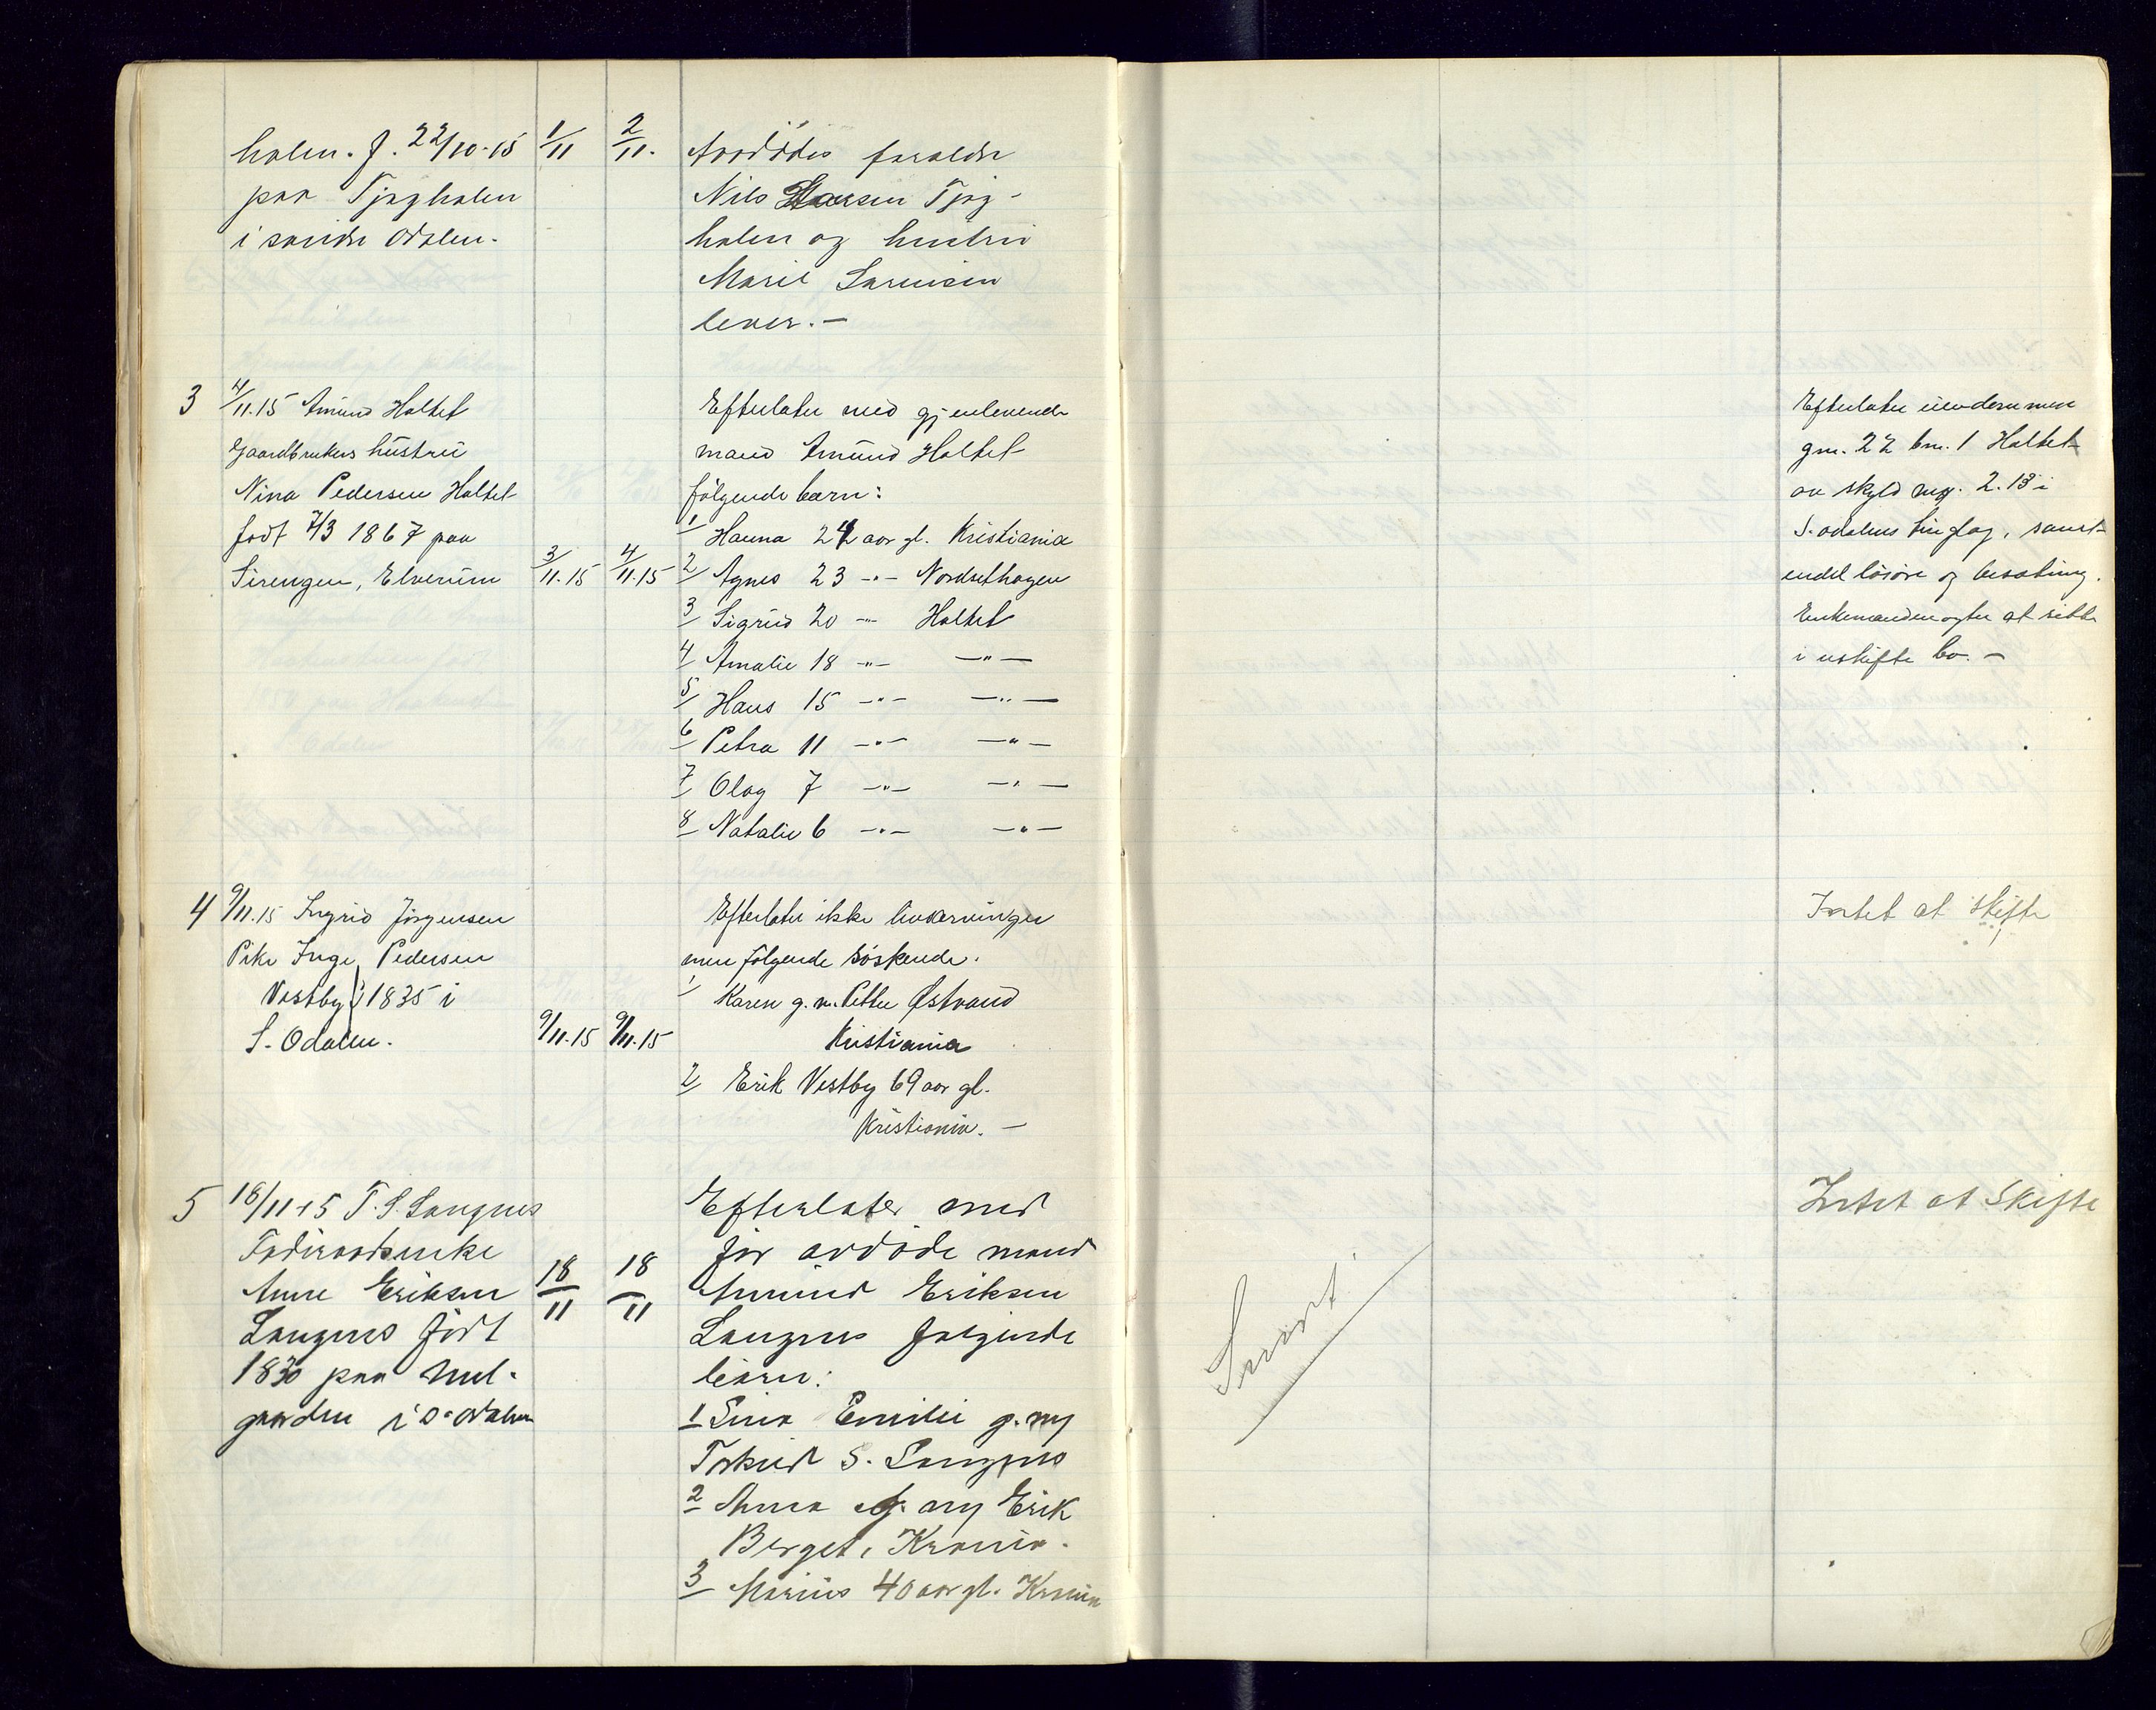 holen. f. 22/10-15
paa Tjægholen
i søndre Odalen.
1/11
2/11.
Avdödes foreldre
Nils Larsen Tjæg-
holen og hustru
Marie Larensen
lever. —
3
4/11.15 Amund Holtet
Gaardbrukers hustru
Nina Pedersen Holtet
født 7/3 1867 paa
Sirengen, Elverum
3/11.15
4/11.15
Efterlater med gjenlevende
mand Amund Holtet
følgende barn:
1/ Hanna 24 aar gl. Kristiania
2/ Agnes 23 -"- Nordsethagen
3/ Sigrud 20 -"- Holtet
4/ Amalie 18 -"- —"—
5/ Hans 15 -"- —"—
6/ Petra 11 -"- —"—
7/ Olag 7 -"- —"—
8/ Natalie 6 -"- —"—
Efterlater eiendommen
gnr. 22 bnr. 1 Holtet
av skyld mrk. 2.13 i
S. odalens tinglag, samt
endel løsøre og besætning.
Enkemanden agter at sitte
i uskifte bo. —
4
9/11.15 Ingrid Jørgensen
Pike Inge Pedersen
Vestby f. 1835 i
S. Odalen.
9/11.15
9/11.15
Efterlater ikke livsarvinger
men følgende søskende.
1/ Karen g.m. Petter Østvand
Kristiania
2/ Erik Vestby 69 aar gl.
Kristiania. —
Intet at skifte
5
18/11 15 T. S. Langnes
Føderaadsenke
Anne Eriksen
Langnes født
1830 paa Mel-
gaarden i S. Odalen
18/11
18/11
Efterlater med
før avdöde mand
Amund Eriksen
Langnes følgende
børn:
1 Lina Emilie g. m
Torkild S. Langnes
2 Anna g. m Erik
Berget, Krania.
3 Marius 40 aar gl. Krania
Snart.
Intet at Skifte